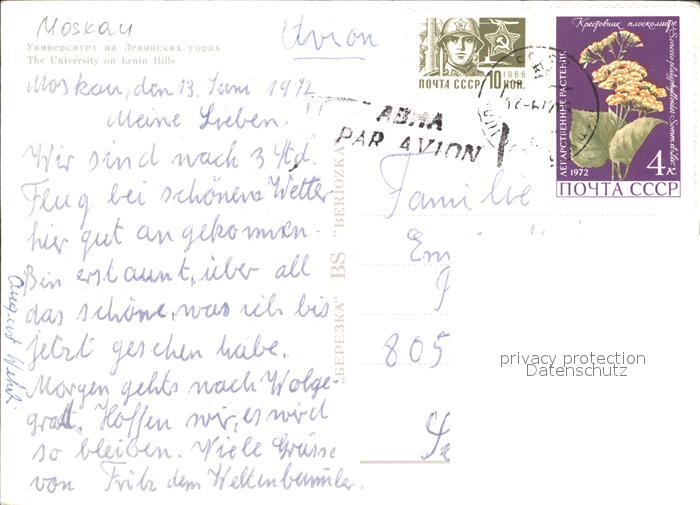 Moskau
Университет на Ленинских горах
The University on Lenin Hills
Avion
Moskau, den 13. Juni 1972
Meine Lieben.
Wir sind nach 3 Std.
Flug bei schönem Wetter
hier gut angekommen.
Bin erstaunt, über all
das schöne, was ich bis
jetzt gesehen habe.
Morgen gehts nach Wolge-
grad. Hoffen wir, es wird
so bleiben. Viele Grüsse
von Fritz dem Weltenbummler.
August
"БЕРЕЗКА" BS "BERIOZKA"
1966
ПОЧТА СССР 10 КОП.
АВИА
PAR AVION
Крестовник плосколистный
Senecio platyphylloides Somm et Lev
ЛЕКАРСТВЕННЫЕ РАСТЕНИЯ
1972
4к
ПОЧТА СССР
Familie
Em
805
privacy protection
Datenschutz